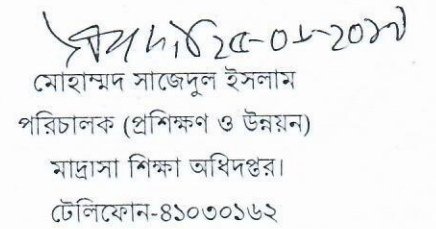 মোহাম্মদ সাজেদুল ইসলাম
পরিচালক (প্রশিক্ষণ ও উন্নয়ন)
মাদ্রাসা শিক্ষা অধিদপ্তর।
টেলিফোন-৪১০৩০১৬২